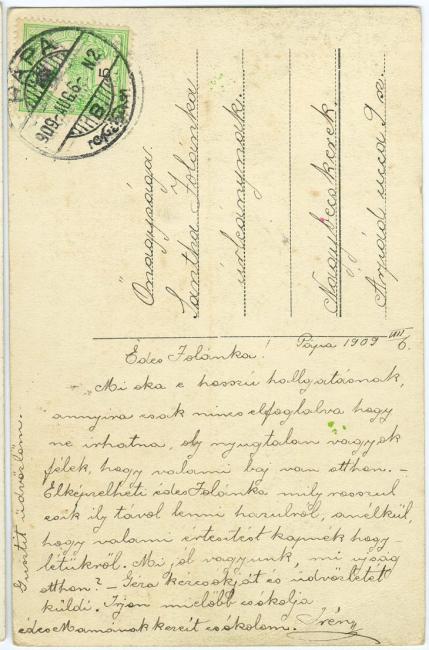 PÁPA
909 AUG. 6. N2
5
Őnagysága
Santha Jolánka
úrleánynak.
Nagybecskerek.
Árpád ucca 9 sz.
Pápa 1909 VIII/6.
Édes Jolánka!
Mi oka e hosszú hallgatásnak,
annyira csak nincs elfoglalva hogy
ne irhatna, oly nyugtalan vagyok
félek, hogy valami baj van otthon. –
Elképzelheti édes Jolánka mily rosszul
esik ily távol lenni hazulról, anélkül,
hogy valami értesítést kapnék hogy-
létükről. Mi jól vagyunk, mi ujság
otthon? – Géza kézcsókját és üdvözletét
küldi. Irjon mielőbb csókolja
édes Mamának kezeit csókolom. Irén
Gusztit üdvözlöm.